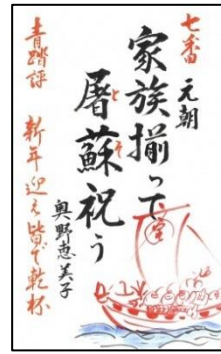 七番
元朝
家族揃って
屠蘇祝う
とそ
奥野恵美子
青踏評
新年迎え皆で乾杯